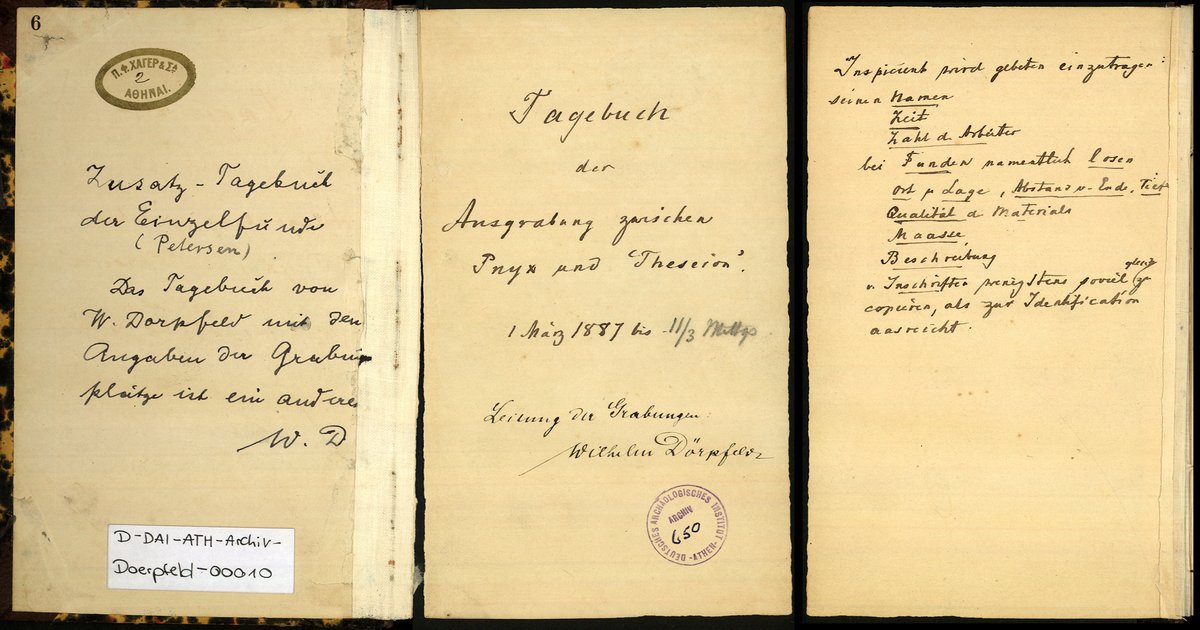 6
Π.Φ. ΧΑΓΕΡ & Σᴬ
2
ΑΘΗΝΑΙ.
Zusatz-Tagebuch
der Einzelfunde
(Petersen)
Das Tagebuch von
W. Dorpfeld mit den
Angaben der Grabungs
plätze ist ein anderes
W. D
D-DAI-ATH-Archiv-
Doerpfeld-00010
Tagebuch
der
Ausgrabung zwischen
Pnyx und 'Theseion'.
1 März 1887 bis 11/3
Leitung der Grabungen:
Wilhelm Dörpfeld
DEUTSCHES ARCHÄOLOGISCHES INSTITUT -ATHEN-
ARCHIV
650
Inspicient wird gebeten einzutragen:
seinen Namen
Zeit
Zahl d Arbeiter
bei Funden namentlich losen
Ort u Lage, Abstand v. Ende, Tiefe
Qualität d Materials
Maasse
Beschreibung
v. Inschriften wenigstens soviel gleich zu
copieren, als zur Identification
ausreicht.